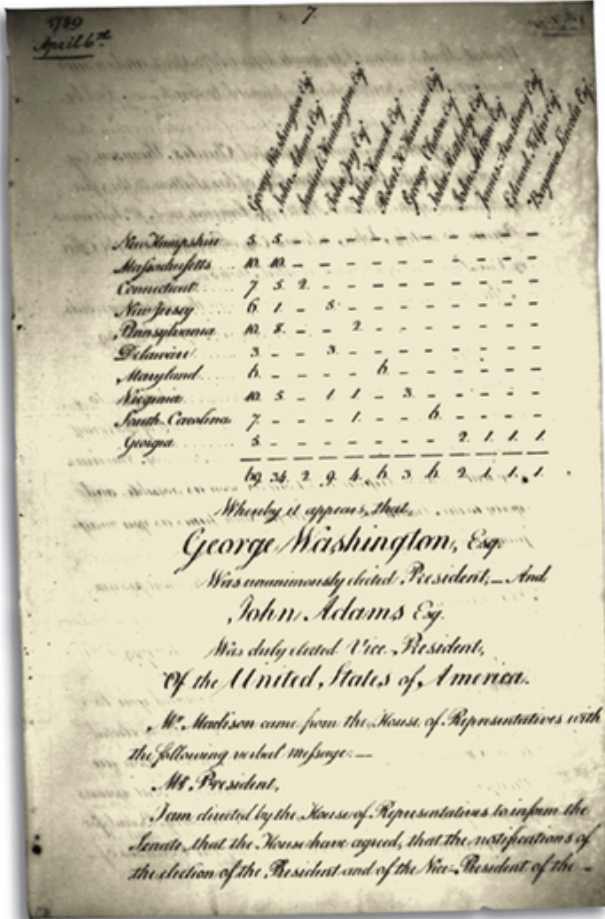 1789
April 6th
7.
George Washington Esqr
John Adams Esqr
Samuel Huntington Esqr
John Jay Esqr
John Hancock Esqr
Robert H. Harrison Esqr
George Clinton Esqr
John Rutledge Esqr
John Milton Esqr
James Armstrong Esqr
Edward Telfair Esqr
Benjamin Lincoln Esqr
New Hampshire 5. 5. - - - - - - - - - -
Massachusetts 10. 10. - - - - - - - - - -
Connecticut 7. 5. 2. - - - - - - - - -
New Jersey 6. 1. - 5. - - - - - - - -
Pennsylvania 10. 8. - - 2. - - - - - - -
Delaware 3. - - 3. - - - - - - - -
Maryland 6. - - - - 6. - - - - - -
Virginia 10. 5. - 1. 1. - 3. - - - - -
South Carolina 7. - - - 1. - - 6. - - - -
Georgia 5. - - - - - - - 2. 1. 1. 1.
69. 34. 2. 9. 4. 6. 3. 6. 2. 1. 1. 1.
Whereby it appears, that
George Washington, Esq.
Was unanimously elected President,— And
John Adams Esq.
Was duly elected Vice President,
Of the United States of America.
Mr. Madison came from the House of Representatives with
the following verbal message:—
Mr. President,
I am directed by the House of Representatives to inform the
Senate, that the House have agreed, that the notifications of
the election of the President and of the Vice-President of the